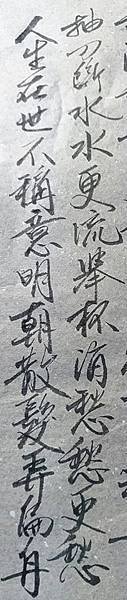 抽刀斷水水更流舉杯消愁愁更愁
人生在世不稱意明朝散髮弄扁舟